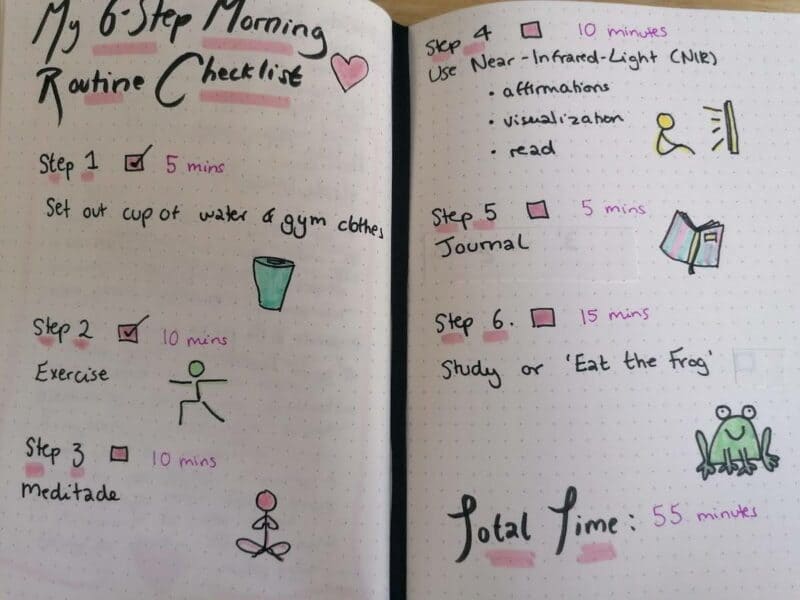 My 6-Step Morning
Routine Checklist
Step 1 5 mins
Set out cup of water & gym clothes
Step 2 10 mins
Exercise
Step 3 10 mins
meditade
Step 4 10 minutes
Use Near-Infrared-Light (NIR)
• affirmations
• visualization
• read
Step 5 5 mins
Journal
Step 6. 15 mins
Study or 'Eat the Frog'
Total Time: 55 minutes